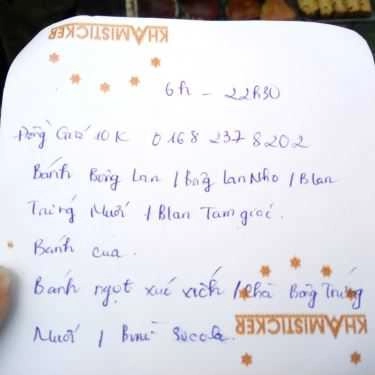 KHAMISTICKER
6h - 22h30
Đồng Giá 10K 0168 237 8202
Bánh Bông Lan / Bông Lan Nho / B lan
Trứng Muối / B lan Tam giác.
Bánh cua.
Bánh ngọt xúc xích / chà Bông Trứng
Muối / Socola.
KHAMISTICKER